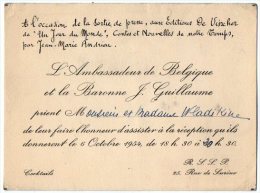 A l'occasion de la sortie de presse, aux Editions De Visscher
de "Un Jour du Monde", Contes et Nouvelles de notre Temps,
par Jean-Marie Andrieu.
L'Ambassadeur de Belgique
et la Baronne J. Guillaume
prient Monsieur et Madame
de leur faire l'honneur d'assister à la réception qu'ils
donneront le 6 Octobre 1954, de 18 h. 30 à 20 h. 30.
R. S. V. P.
Cocktails 25, Rue de Surène